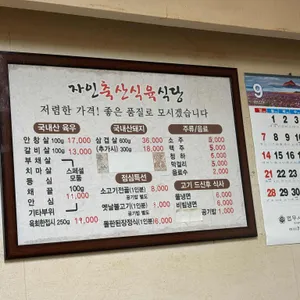 자인축산식육식당
저렴한 가격! 좋은 품질로 모시겠습니다
국내산 육우
안창살 100g 17,000
갈비살 100g 13,000
부채살
치마살
등심
채끝 100g 11,000
안심
기타부위
스페셜
모듬
육회한접시 250g
국내산돼지
삼겹살 600g 36,000
(추가시) 300g 18,000
점심특선
소고기전골(1인분) 8,000
공기밥 별도
옛날불고기(1인분)
공기밥 별도
돌판된장정식(1인분) 6,000
주류/음료
소주
맥주
청하
막걸리
음료수
고기 드신후 식사
물냉면
비빔냉면
공기밥 1,000
9
1 2
7 8 9
14 15 16
21 22 23
28 29 30